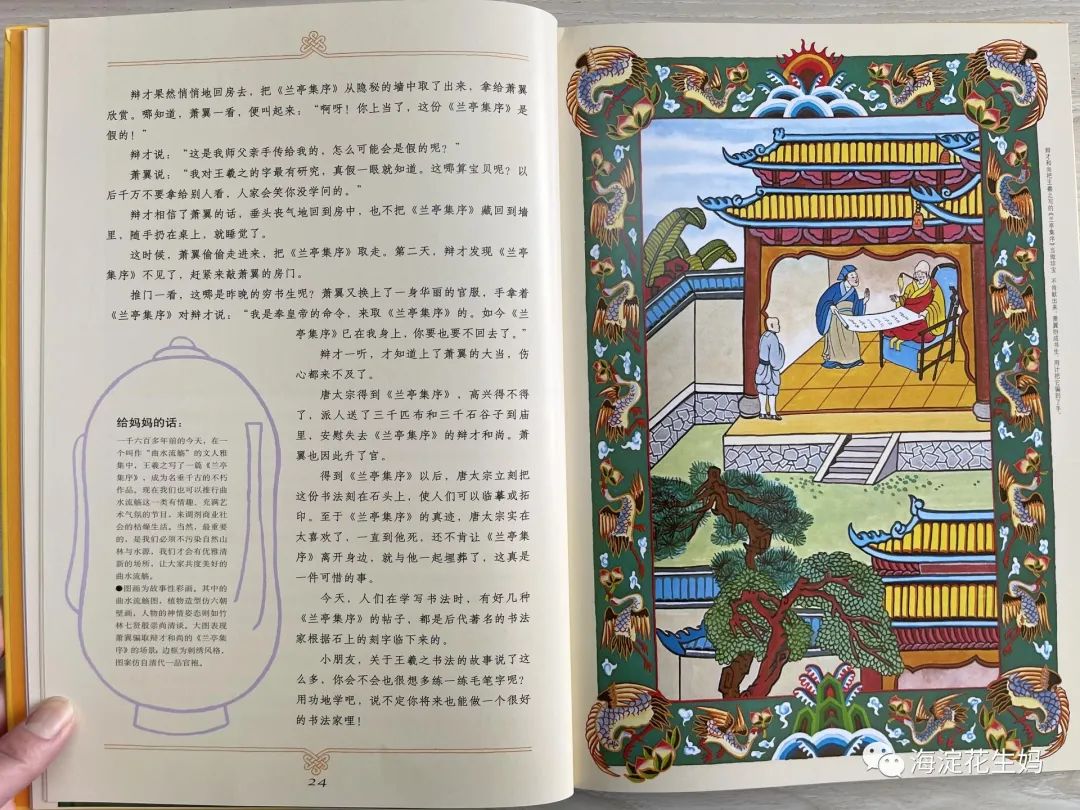 辩才果然悄悄地回房去，把《兰亭集序》从隐秘的墙中取了出来，拿给萧翼
欣赏。哪知道，萧翼一看，便叫起来：“啊呀！你上当了，这份《兰亭集序》是
假的！”
辩才说：“这是我师父亲手传给我的，怎么可能会是假的呢？”
萧翼说：“我对王羲之的字最有研究，真假一眼就知道。这哪算宝贝呢？以
后千万不要拿给别人看，人家会笑你没学问的。”
辩才相信了萧翼的话，垂头丧气地回到房中，也不把《兰亭集序》藏回到墙
里，随手扔在桌上，就睡觉了。
这时候，萧翼偷偷走进来，把《兰亭集序》取走。第二天，辩才发现《兰亭
集序》不见了，赶紧来敲萧翼的房门。
推门一看，这哪是昨晚的穷书生呢？萧翼又换上了一身华丽的官服，手拿着
《兰亭集序》对辩才说：“我是奉皇帝的命令，来取《兰亭集序》的。如今《兰
亭集序》已在我身上，你要也要不回去了。”
辩才一听，才知道上了萧翼的大当，伤
心都来不及了。
唐太宗得到《兰亭集序》，高兴得不得
了，派人送了三千匹布和三千石谷子到庙
里，安慰失去《兰亭集序》的辩才和尚。萧
翼也因此升了官。
得到《兰亭集序》以后，唐太宗立刻把
这份书法刻在石头上，使人们可以临摹或拓
印。至于《兰亭集序》的真迹，唐太宗实在
太喜欢了，一直到他死，还不肯让《兰亭集
序》离开身边，就与他一起埋葬了，这真是
一件可惜的事。
今天，人们在学写书法时，有好几种
《兰亭集序》的帖子，都是后代著名的书法
家根据石上的刻字临下来的。
小朋友，关于王羲之书法的故事说了这
么多，你会不会也很想多练一练毛笔字呢？
用功地学吧，说不定你将来也能做一个很好
的书法家哩！
给妈妈的话：
一千六百多年前的今天，在一
个叫作“曲水流觞”的文人雅
集中，王羲之写了一篇《兰亭
集序》，成为名垂千古的不朽
作品。现在我们也可以推行曲
水流觞这一类有情趣、充满艺
术气氛的节目，来调剂商业社
会的枯燥生活。当然，最重要
的，是我们必须不污染自然山
林与水源，我们才会有优雅清
新的场所，让大家共度美好的
曲水流觞。
●图画为故事性彩画。其中的
曲水流觞图，植物造型仿六朝
壁画，人物的神情姿态则如竹
林七贤般崇尚清谈。大图表现
萧翼骗取辩才和尚的《兰亭集
序》的场景；边框为刺绣风格，
图案仿自清代一品官袍。
24
辩才和尚把王羲之写的《兰亭集序》当做珍宝，不肯献出来，萧翼扮成书生，用计把它骗到了手。
海淀花生妈